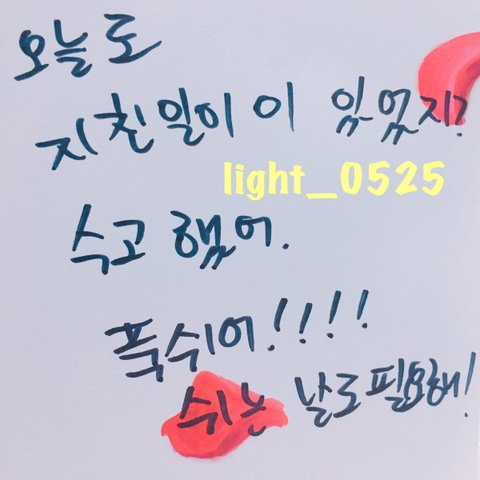 오늘도
지친일이 이 있었지?
light_0525
수고 했어.
푹쉬어!!!!
쉬는 날도필요해!